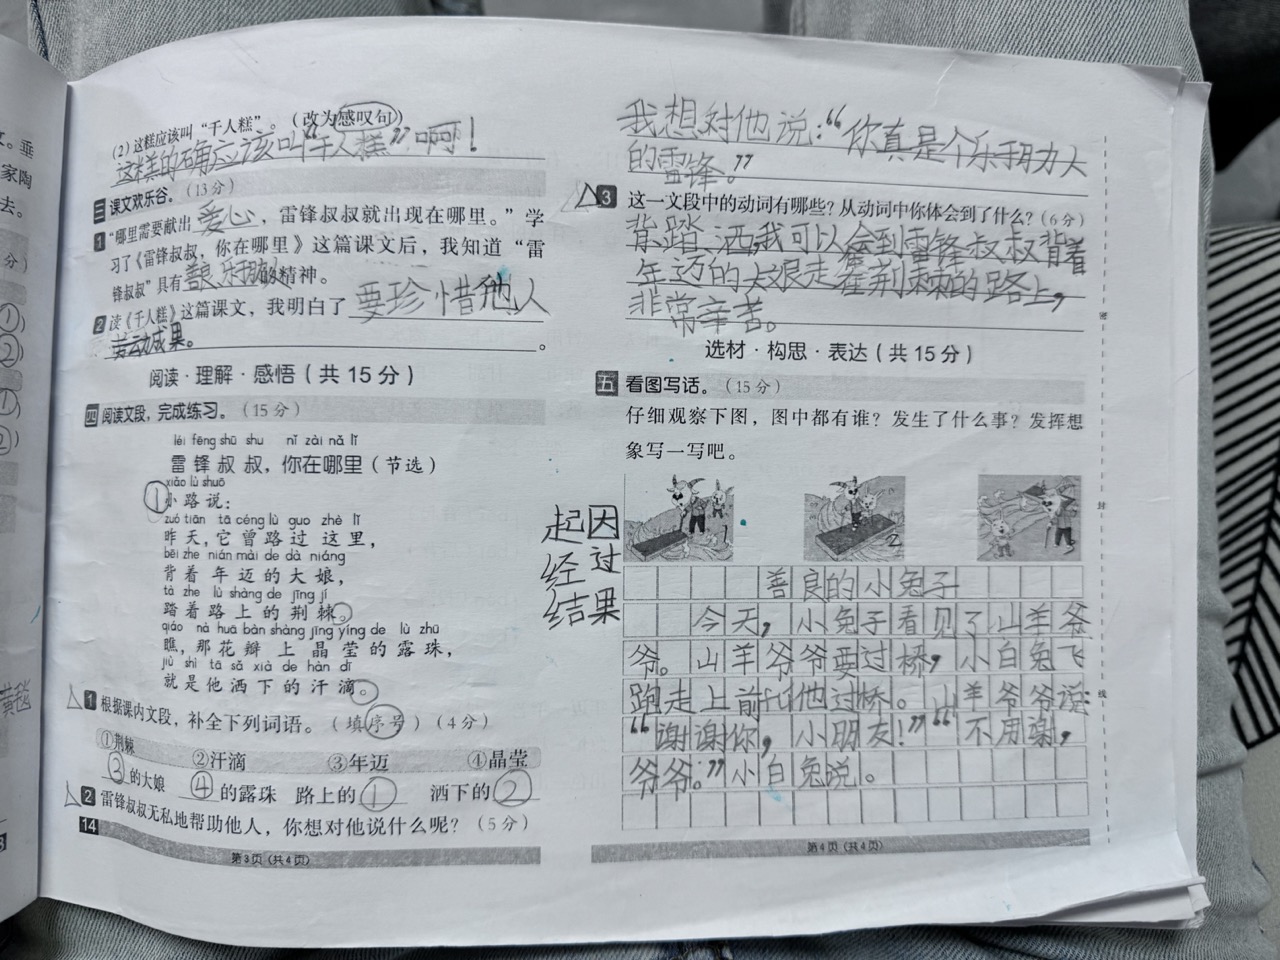 文。垂
家陶
去。
分）
①）
②）
①）
②）
(2) 这糕应该叫“千人糕”。（改为感叹句）
这糕的确应该叫“千人糕”啊！
三 课文欢乐谷。（13分）
1 “哪里需要献出 爱心 ，雷锋叔叔就出现在哪里。”学
习了《雷锋叔叔，你在哪里》这篇课文后，我知道“雷
锋叔叔”具有善良、乐于助人的精神。
2 读《千人糕》这篇课文，我明白了 要珍惜他人
劳动成果。 。
阅读·理解·感悟（共15分）
四 阅读文段，完成练习。（15分）
léi fēng shū shu nǐ zài nǎ lǐ
雷锋叔叔，你在哪里（节选）
xiǎo lù shuō
①小路说：
zuó tiān tā céng lù guo zhè lǐ
昨天，它曾路过这里，
bēi zhe nián mài de dà niáng
背着年迈的大娘，
tà zhe lù shàng de jīng jí
踏着路上的荆棘。
qiáo nà huā bàn shàng jīng yíng de lù zhū
瞧，那花瓣上晶莹的露珠，
jiù shì tā sǎ xià de hàn dī
就是他洒下的汗滴。
1 根据课内文段，补全下列词语。（填序号）（4分）
①荆棘 ②汗滴 ③年迈 ④晶莹
③的大娘 ④的露珠 路上的① 洒下的②
2 雷锋叔叔无私地帮助他人，你想对他说什么呢？（5分）
14
第3页（共4页）
我想对他说：“你真是个乐于助人
的雷锋。”
3 这一文段中的动词有哪些？从动词中你体会到了什么？（6分）
背、踏、洒，我可以会到雷锋叔叔背着
年迈的大娘走在荆棘的路上，
非常辛苦。
选材·构思·表达（共15分）
五 看图写话。（15分）
仔细观察下图，图中都有谁？发生了什么事？发挥想
象写一写吧。
1 2 3
起因
经过
结果
善良的小兔子
今天，小兔子看见了山羊爷
爷。山羊爷爷要过桥，小白兔飞
跑走上前扶他过桥。山羊爷爷说：
“谢谢你，小朋友！”“不用谢，
爷爷。”小白兔说。
第4页（共4页）
密
封
线